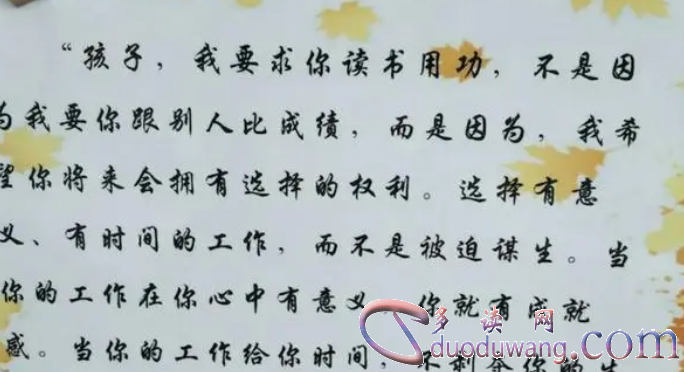 “孩子，我要求你读书用功，不是因
为我要你跟别人比成绩，而是因为，我希
望你将来会拥有选择的权利。选择有意
义、有时间的工作，而不是被迫谋生。当
你的工作在你心中有意义，你就有成就
感。当你的工作给你时间，不剥夺你的生
多读网
duoduwang.com